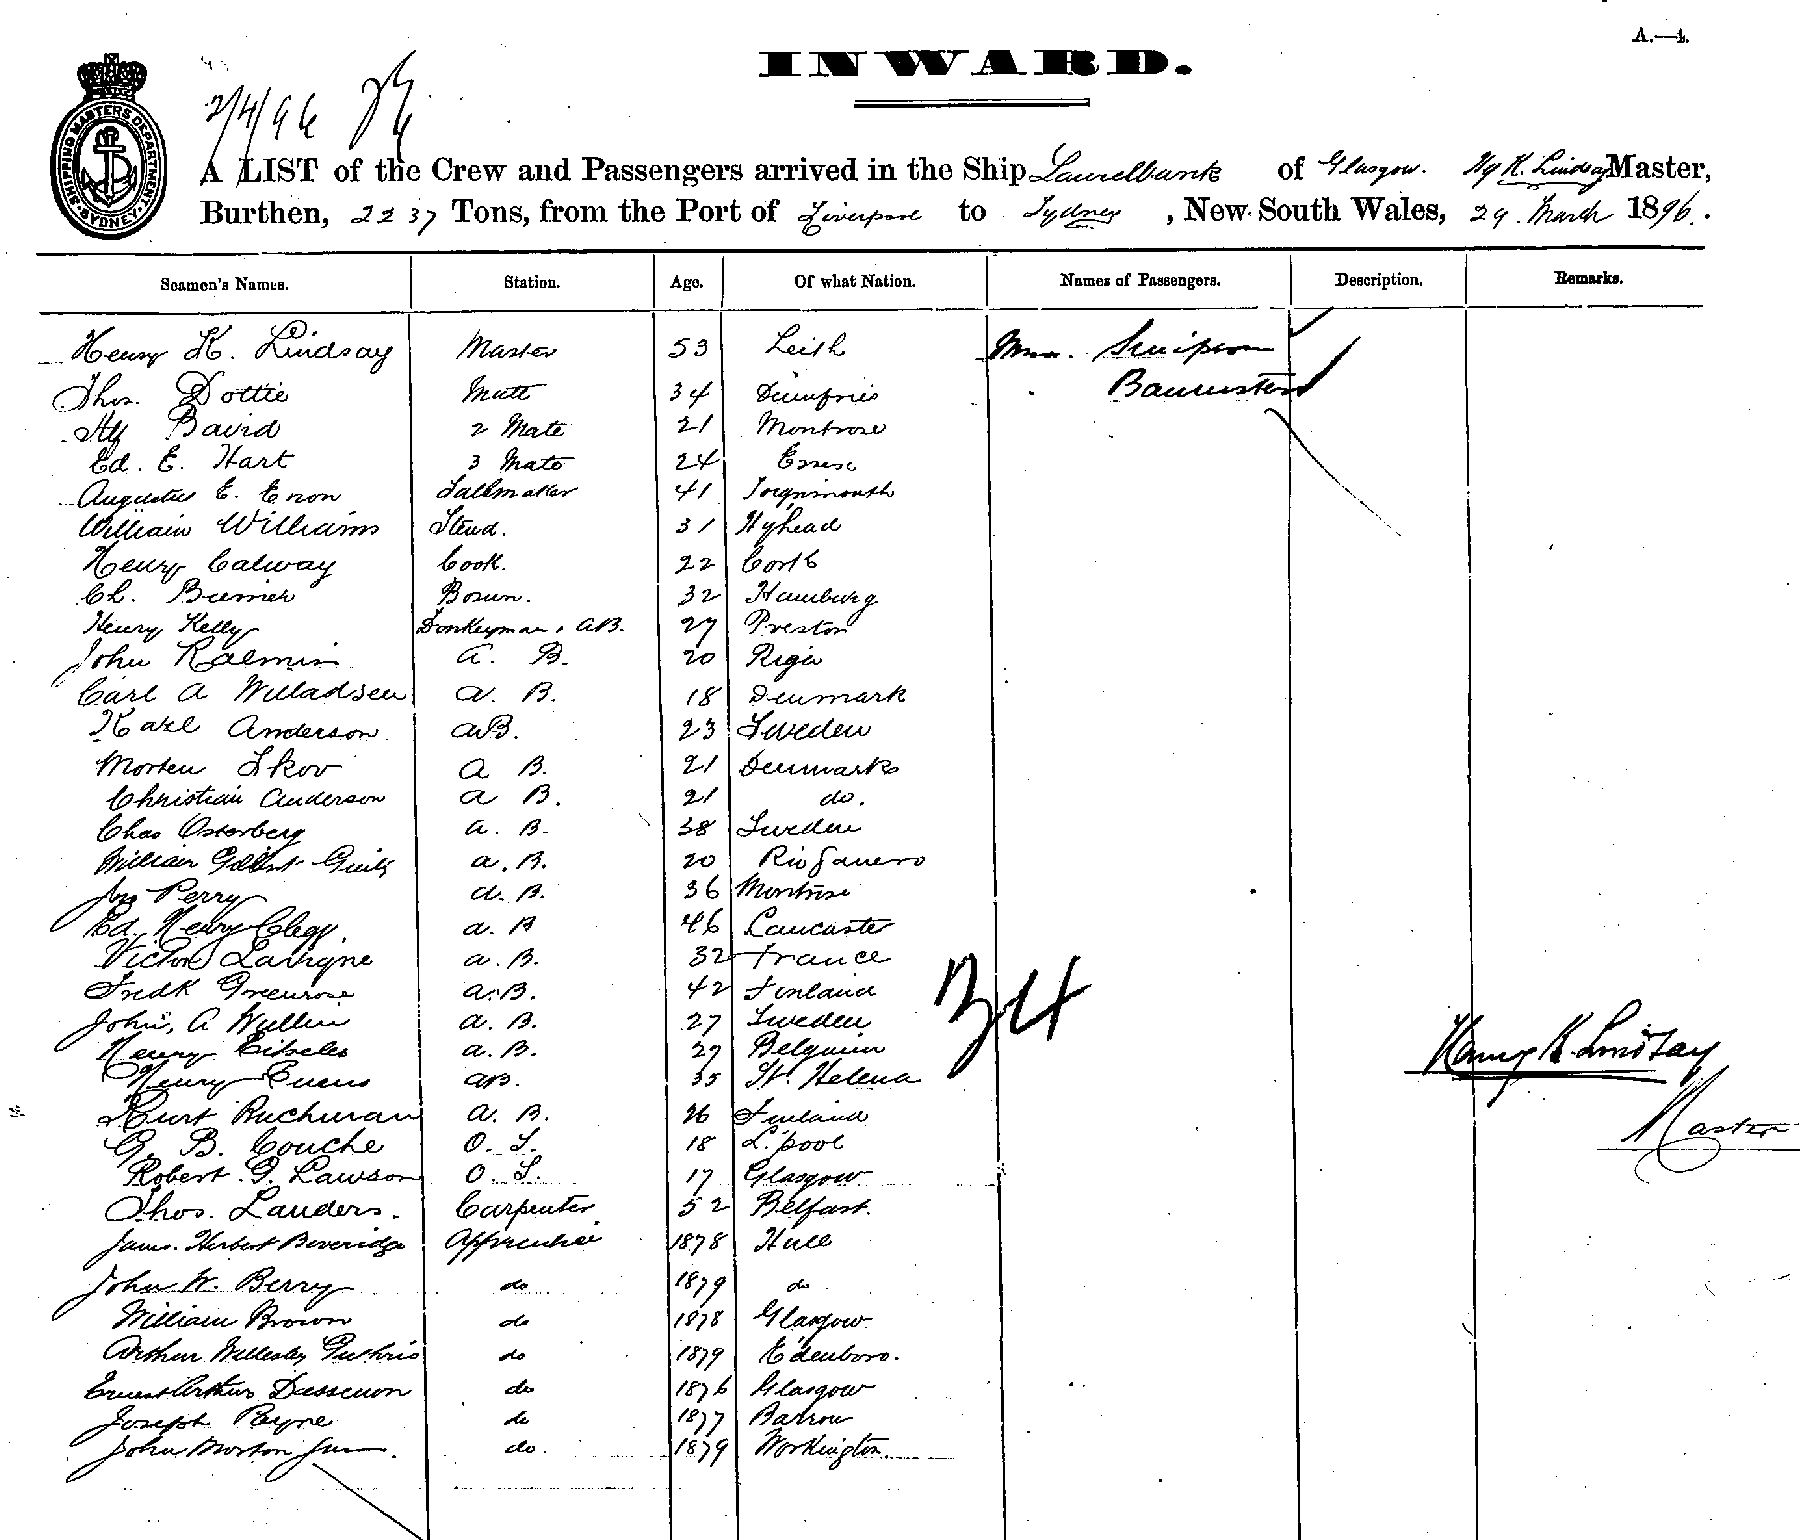 A.—4.
INWARD.
2/4/96
SHIPPING MASTERS DEPARTMENT. SYDNEY.
A LIST of the Crew and Passengers arrived in the Ship Laurelbank of Glasgow. Hy K. Lindsay Master,
Burthen, 2237 Tons, from the Port of Liverpool to Sydney, New South Wales, 29. March 1896.
Seamen's Names. Station. Age. Of what Nation. Names of Passengers. Description. Remarks.
Henry K. Lindsay Master 53 Leith Mrs. Simpson
Thos. Dottie Mate 34 Dumfries Bannister
Alf Bavid 2 Mate 21 Montrose
Ed. E. Hart 3 Mate 24 Essex
Augustus E. Enon Sailmaker 41 Teignmouth
William Williams Stewd. 31 Hyhead
Henry Calway Cook. 22 Cork
Ch. Bremer Bosun. 32 Hamburg
Henry Kelly Donkeyman, AB. 27 Preston
John Kalmin A. B. 20 Riga
Carl A Willadsen A. B. 18 Denmark
Karl Anderson AB. 23 Sweden
Morten Skov A B. 21 Denmark
Christian Anderson A B. 21 do.
Chas Osterberg A. B. 38 Sweden
William Gilbert A. B. 20 Rio Janero
Jas Perry A. B. 36 Montrose
Ed. Henry Clegg. A. B 46 Lancaster
Victor Lavigne A. B. 32 France
Fredk Greenrose A. B. 42 Finland
John, A Wullin A. B. 27 Sweden
Henry A. B. 27 Belguim
Henry Evens AB. 35 St. Helena
34
Henry K. Lindsay
Kurt Ruchman A. B. 26 Finland
Master
G. B. Couche O. S. 18 L'pool
Robert. G. Lawson O. S. 17 Glasgow
Thos. Landers. Carpenter 52 Belfast.
James. Herbert Beveridge Apprentice 1878 Hull
John W. Berry do 1879 do
William Brown do 1878 Glasgow
Arthur Wellesley Guthrie do 1879 Edenboro.
Ernest Arthur Dessenon do 1876 Glasgow
Joseph Payne do 1877 Barrow
John Morton Jun. do. 1879 Workington